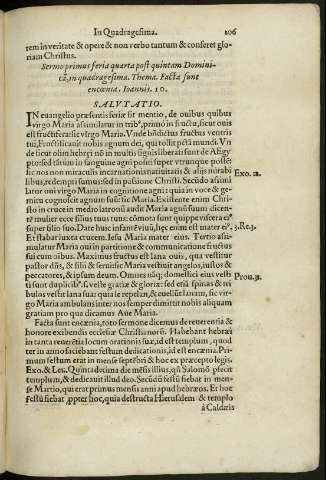 In Quadragesima. 106
rem in veritate & opere & non verbo tantum & conferet glo-
riam Christus.
Sermo primus feria quarta post quintam Domini-
cā, in quadragesima. Thema. Facta sunt
encœnia. Ioannis. 10.
SALVTATIO.
IN euangelio præsentis feriæ fit mentio, de ouibus quibus
virgo Maria assimilatur in tribꝰ, primo in fructu, sicut ouis
est fructifera: sic virgo Maria. Vnde bñdictus fructus ventris
tui, Fructificauit nobis agnum dei, qui tollit pctā mundi. Vn
de sicut olim hebræi nō in multis signis liberati sunt de AEgy
pto: sed in agni posito super vtrunque postē:
sic nos non miraculis incarnationis natiuitatis & aliis mirabi
libus, redempti sumus: sed in passione Christi. Secūdo assimi
latur oui virgo Maria in cognitione agni: quia in voce & ge-
mitu cognoscit agnum suū: sic Maria. Existente enim Chri-
sto in cruce in medio latronū audit Maria agnū suum dicen-
tē mulier ecce filius tuus
super filio suo. Date huic infantē viuū, hęc enim est mater eiꝰ. 3.Re.3.
Et stabat iuxta crucem. Iesu Maria mater eius. Tertio assi-
mulatur Maria oui in partitione & communicatione fructus
sui cum oībus. Maximus fructus est lana ouis, qua vestitur
pastor
peccatores, & ipsum deum. Omnes
ti sunt duplicibꝰ. s. veste gratiæ & gloriæ: sed etiā spinas & tri
bulos vestit lana sua: quia
Maria ambulans inter nos semper dimittit nobis aliquam
gratiam pro qua dicamus Aue Maria.
Exo. 12.
Prou. 31.
Facta sunt encœnia, toto sermone dicemus de reuerentia &
honore exhibendi ecclesiæ Christianorū. Habebant hebræi
in tanta reuerētia locum orationis suæ, id est templum, quod
ter in anno faciebant festum dedicationis, id est encœnia. Pri-
mum festum erat in mense septēbri & hoc ex præcepto legis.
Exo. & Leu. Quinta decima die mēsis illius, qñ Salomō pfecit
templum, & dedicauit illud deo. Secūdū festū fiebat in men-
se Martio, qui erat primus mensis anni apud hebræos. Et hoc
festū fiebat ꝓpter hoc, quia destructa Hierusalem & templo
à Caldæis